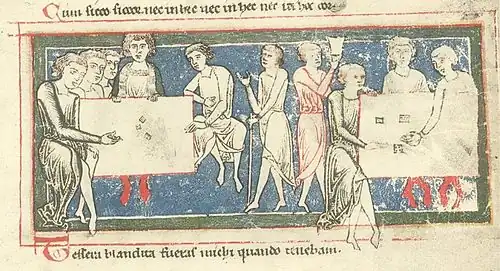 Cum sicco siccor. nec in hec nec in hec nec ita hoc cor.
Tessera blandita fueras michi quando tenebam.